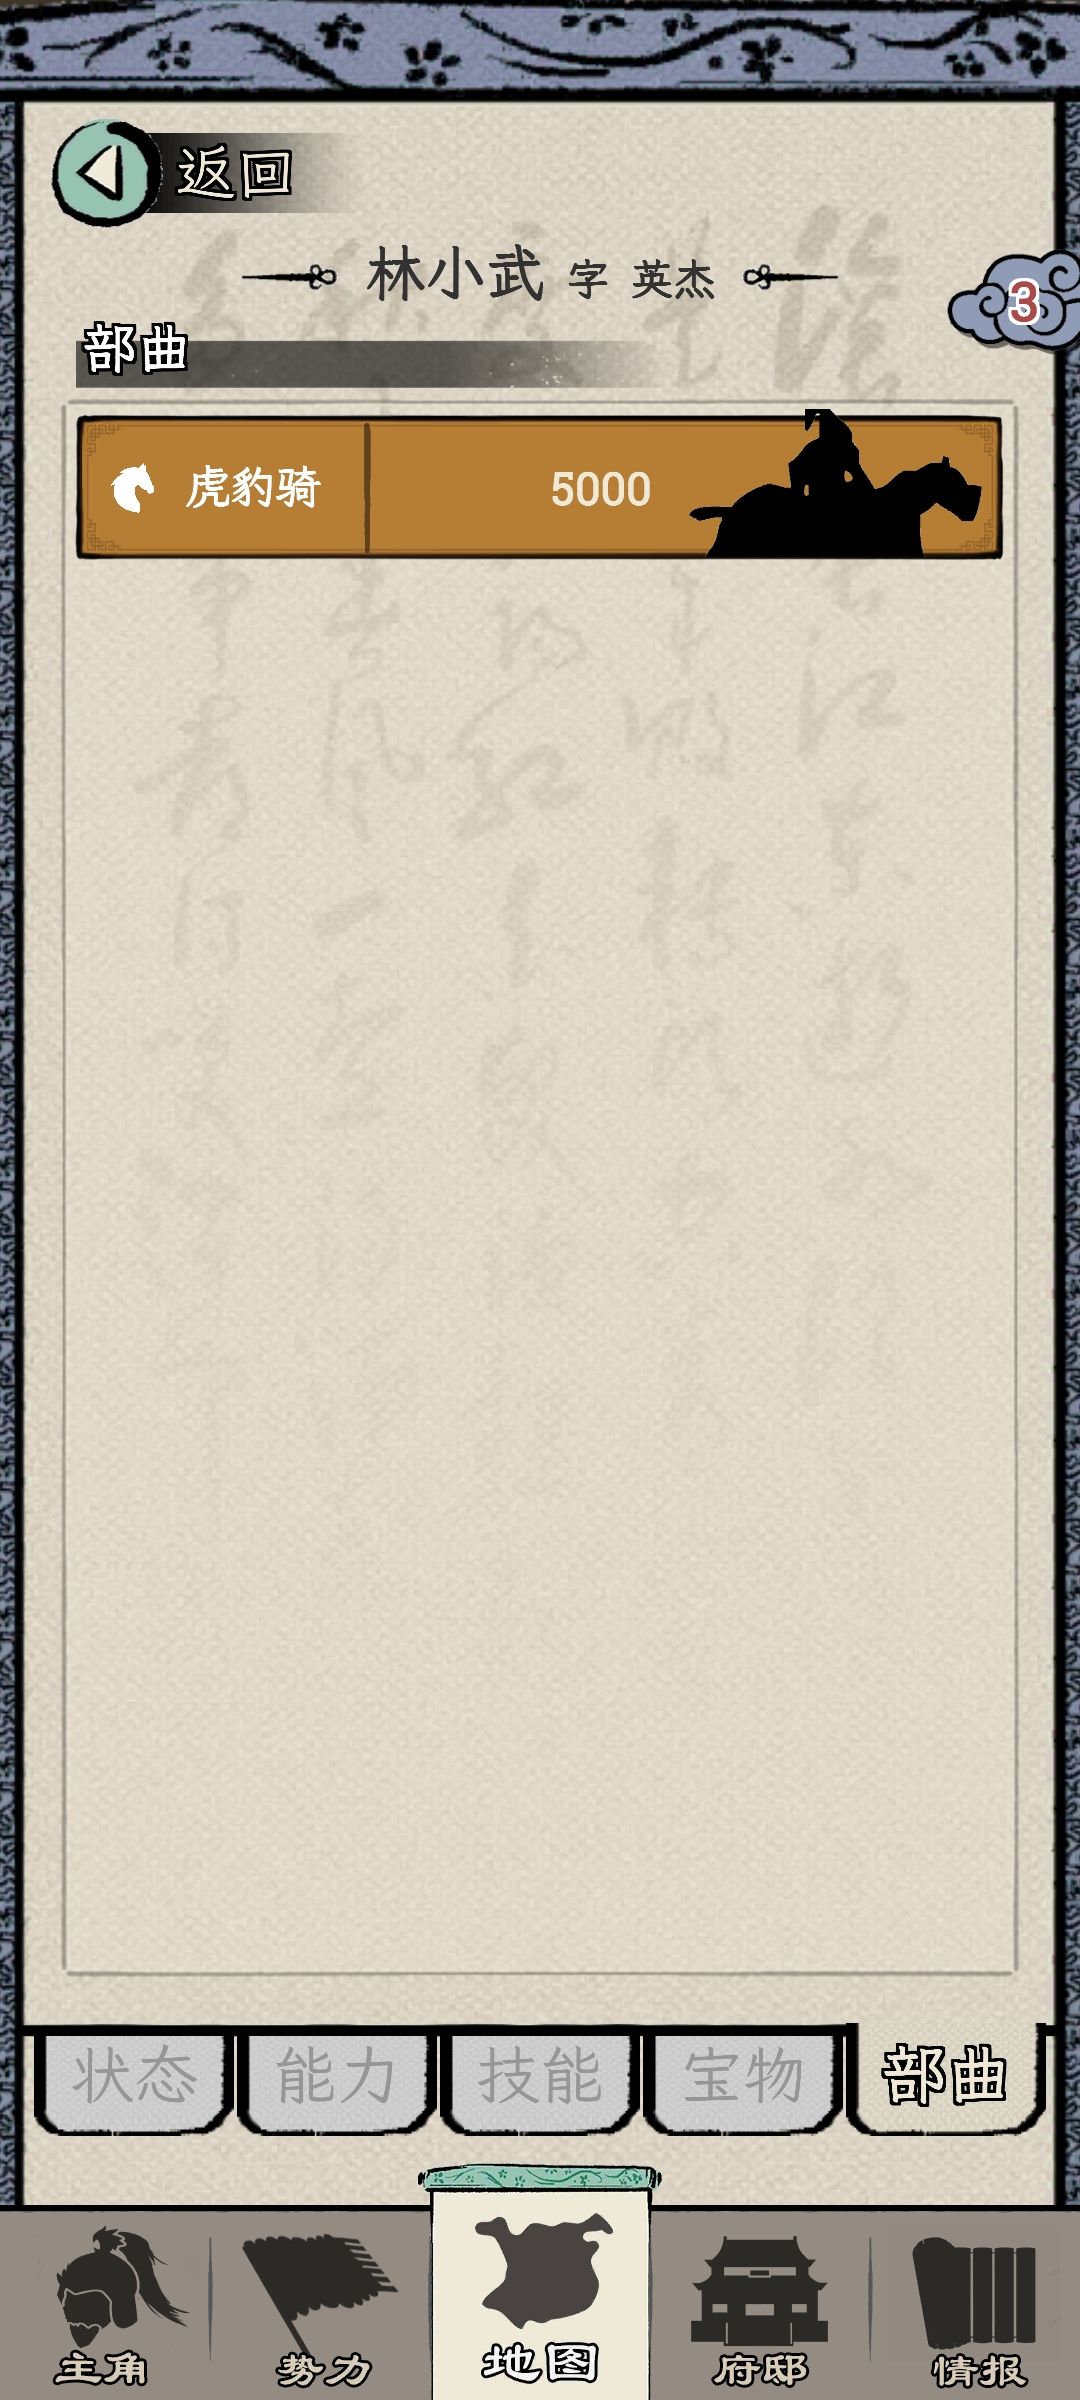 返回
林小武 字 英杰
3
部曲
虎豹骑 5000
状态 能力 技能 宝物 部曲
主角 势力 地图 府邸 情报